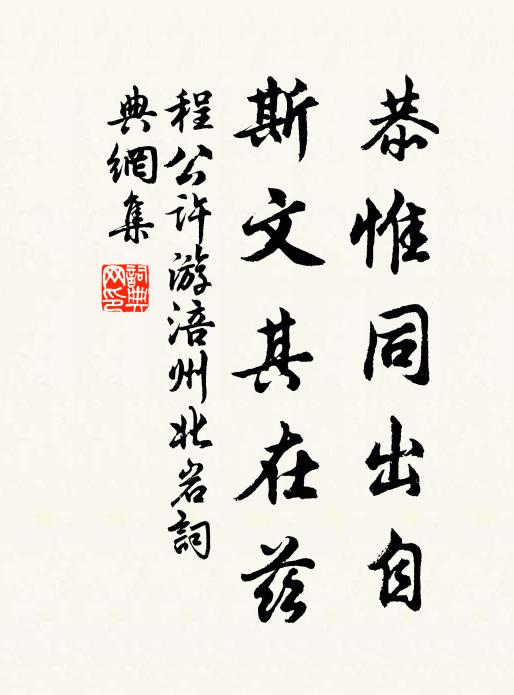 恭惟同出自
斯文其在茲
程公许游涪州北岩詞
典網集
詞典网印